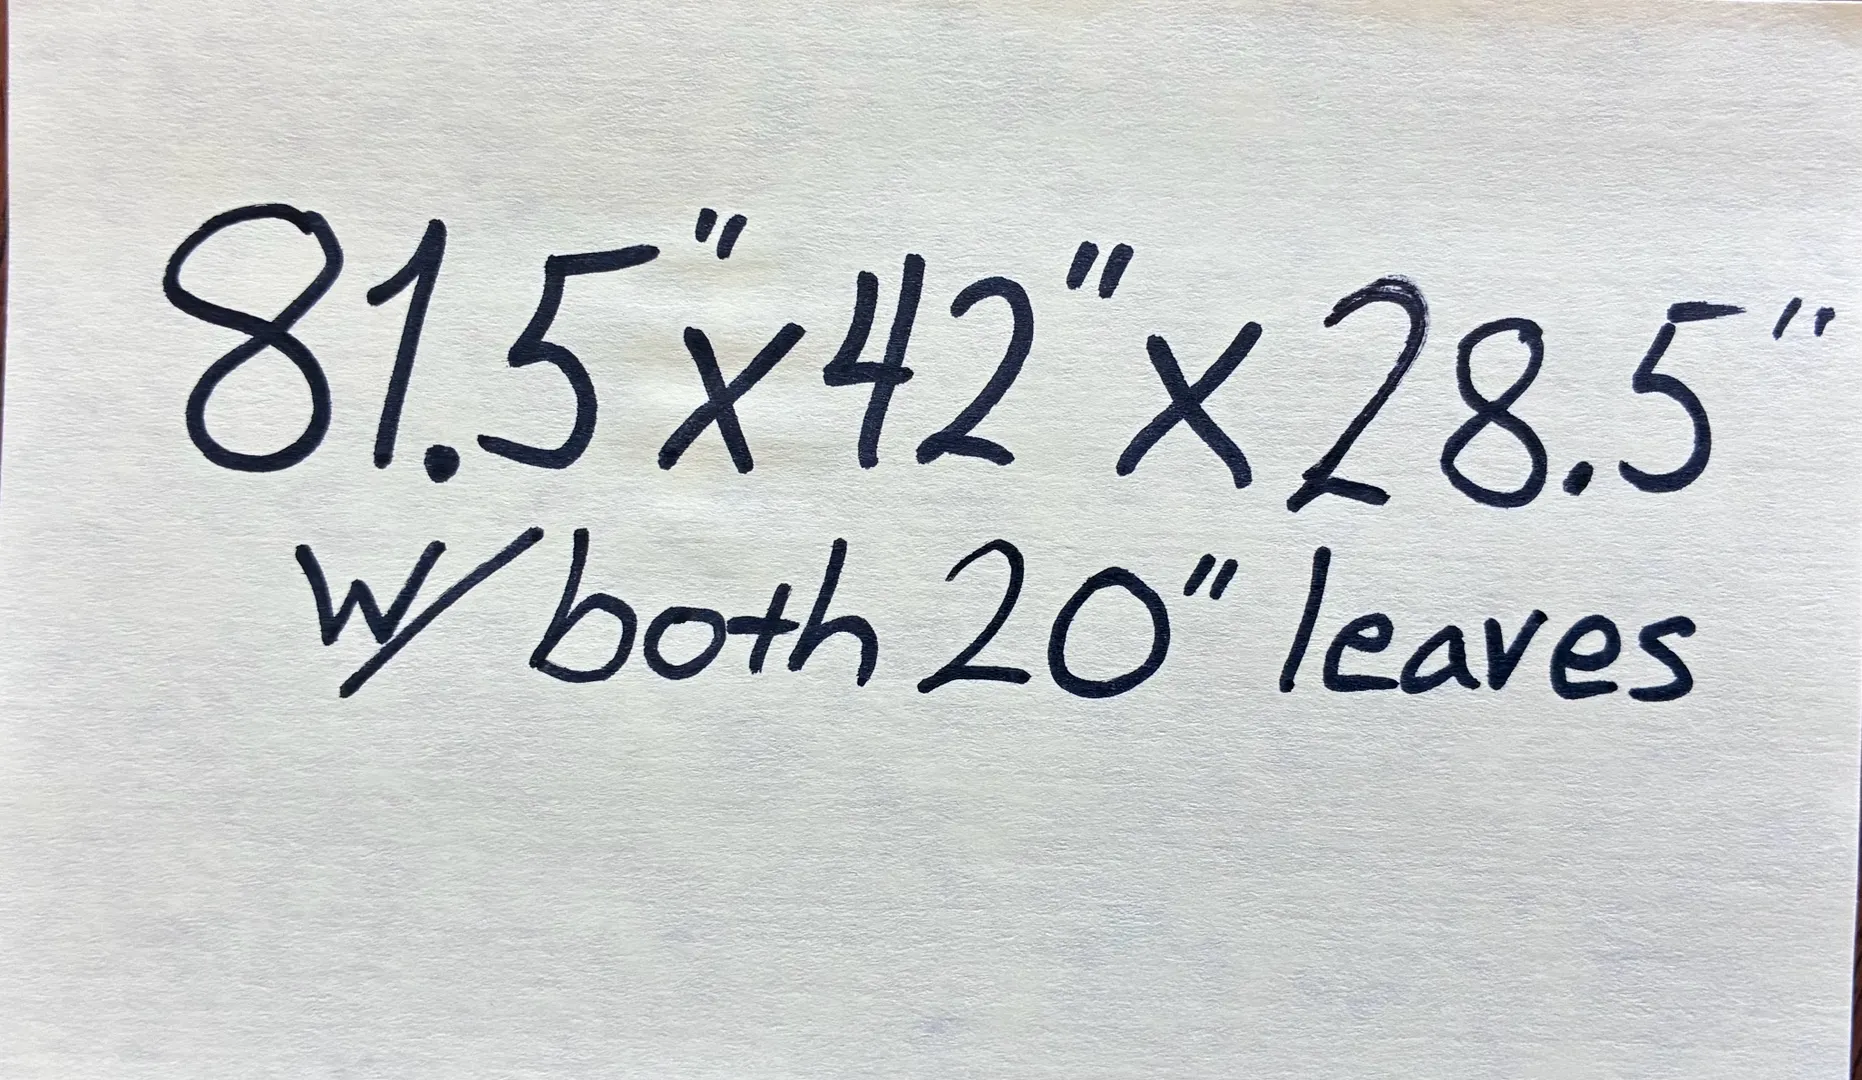 81.5" x 42" x 28.5"
w/ both 20" leaves